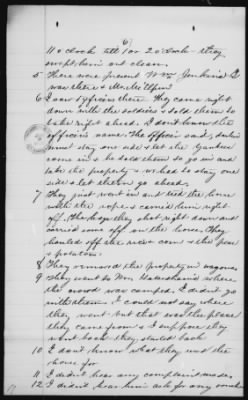 6
11 o'clock till 1 or 2 o'clock - they
swept him out clean.
5 There were present Wm Jenkins &
was there & Mr.
6 I saw 1 officer there. They came right
down with the soldiers & told them to
take right ahead. I don't know the
officer's name. The officer said,
must stay one side & let the Yankees
come in & he told them to go in and
take the property & we had to stay one
side & let them go ahead.
7 They just went in and tied the horse
with the rope & carried him right
off. The hogs they shot right down and
carried some off on the horse. They
hauled off the corn & the peas
& potatoes.
8 They removed the property in wagons
9 They went to Wm where
the crowd was camped. I didn't go
with them. I could not say where
they went but that was the place
they came from & I suppose they
went back they started back
10 I don't know what they used the
horse for
11 I didn't hear any complaint made.
12 I didn't hear him ask for any